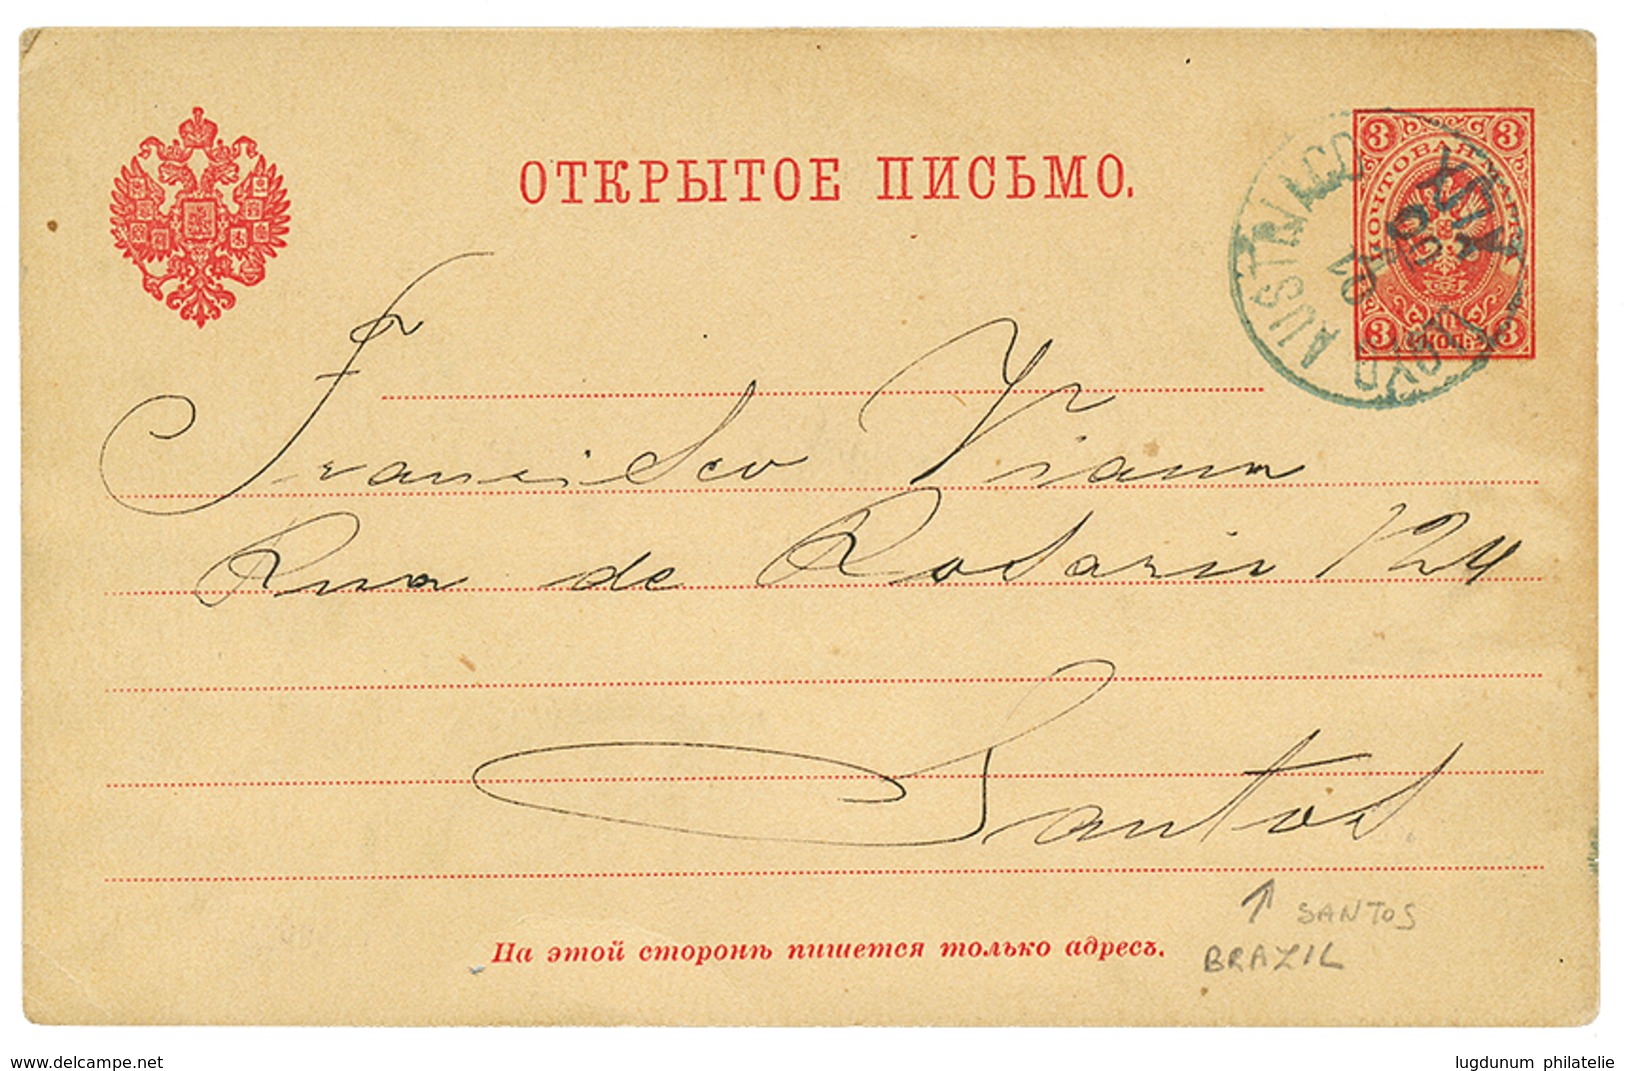 ОТКРЫТОЕ ПИСЬМО.
3 3
ПОЧТОВАЯ МАРКА
КОП.
3 3
LLOYD AUSTRIACO
91
Francisco Viana
Rua de Rosario 124
Santos
SANTOS
BRAZIL
На этой сторонѣ пишется только адресъ.
www.delcampe.net
lugdunum philatelie